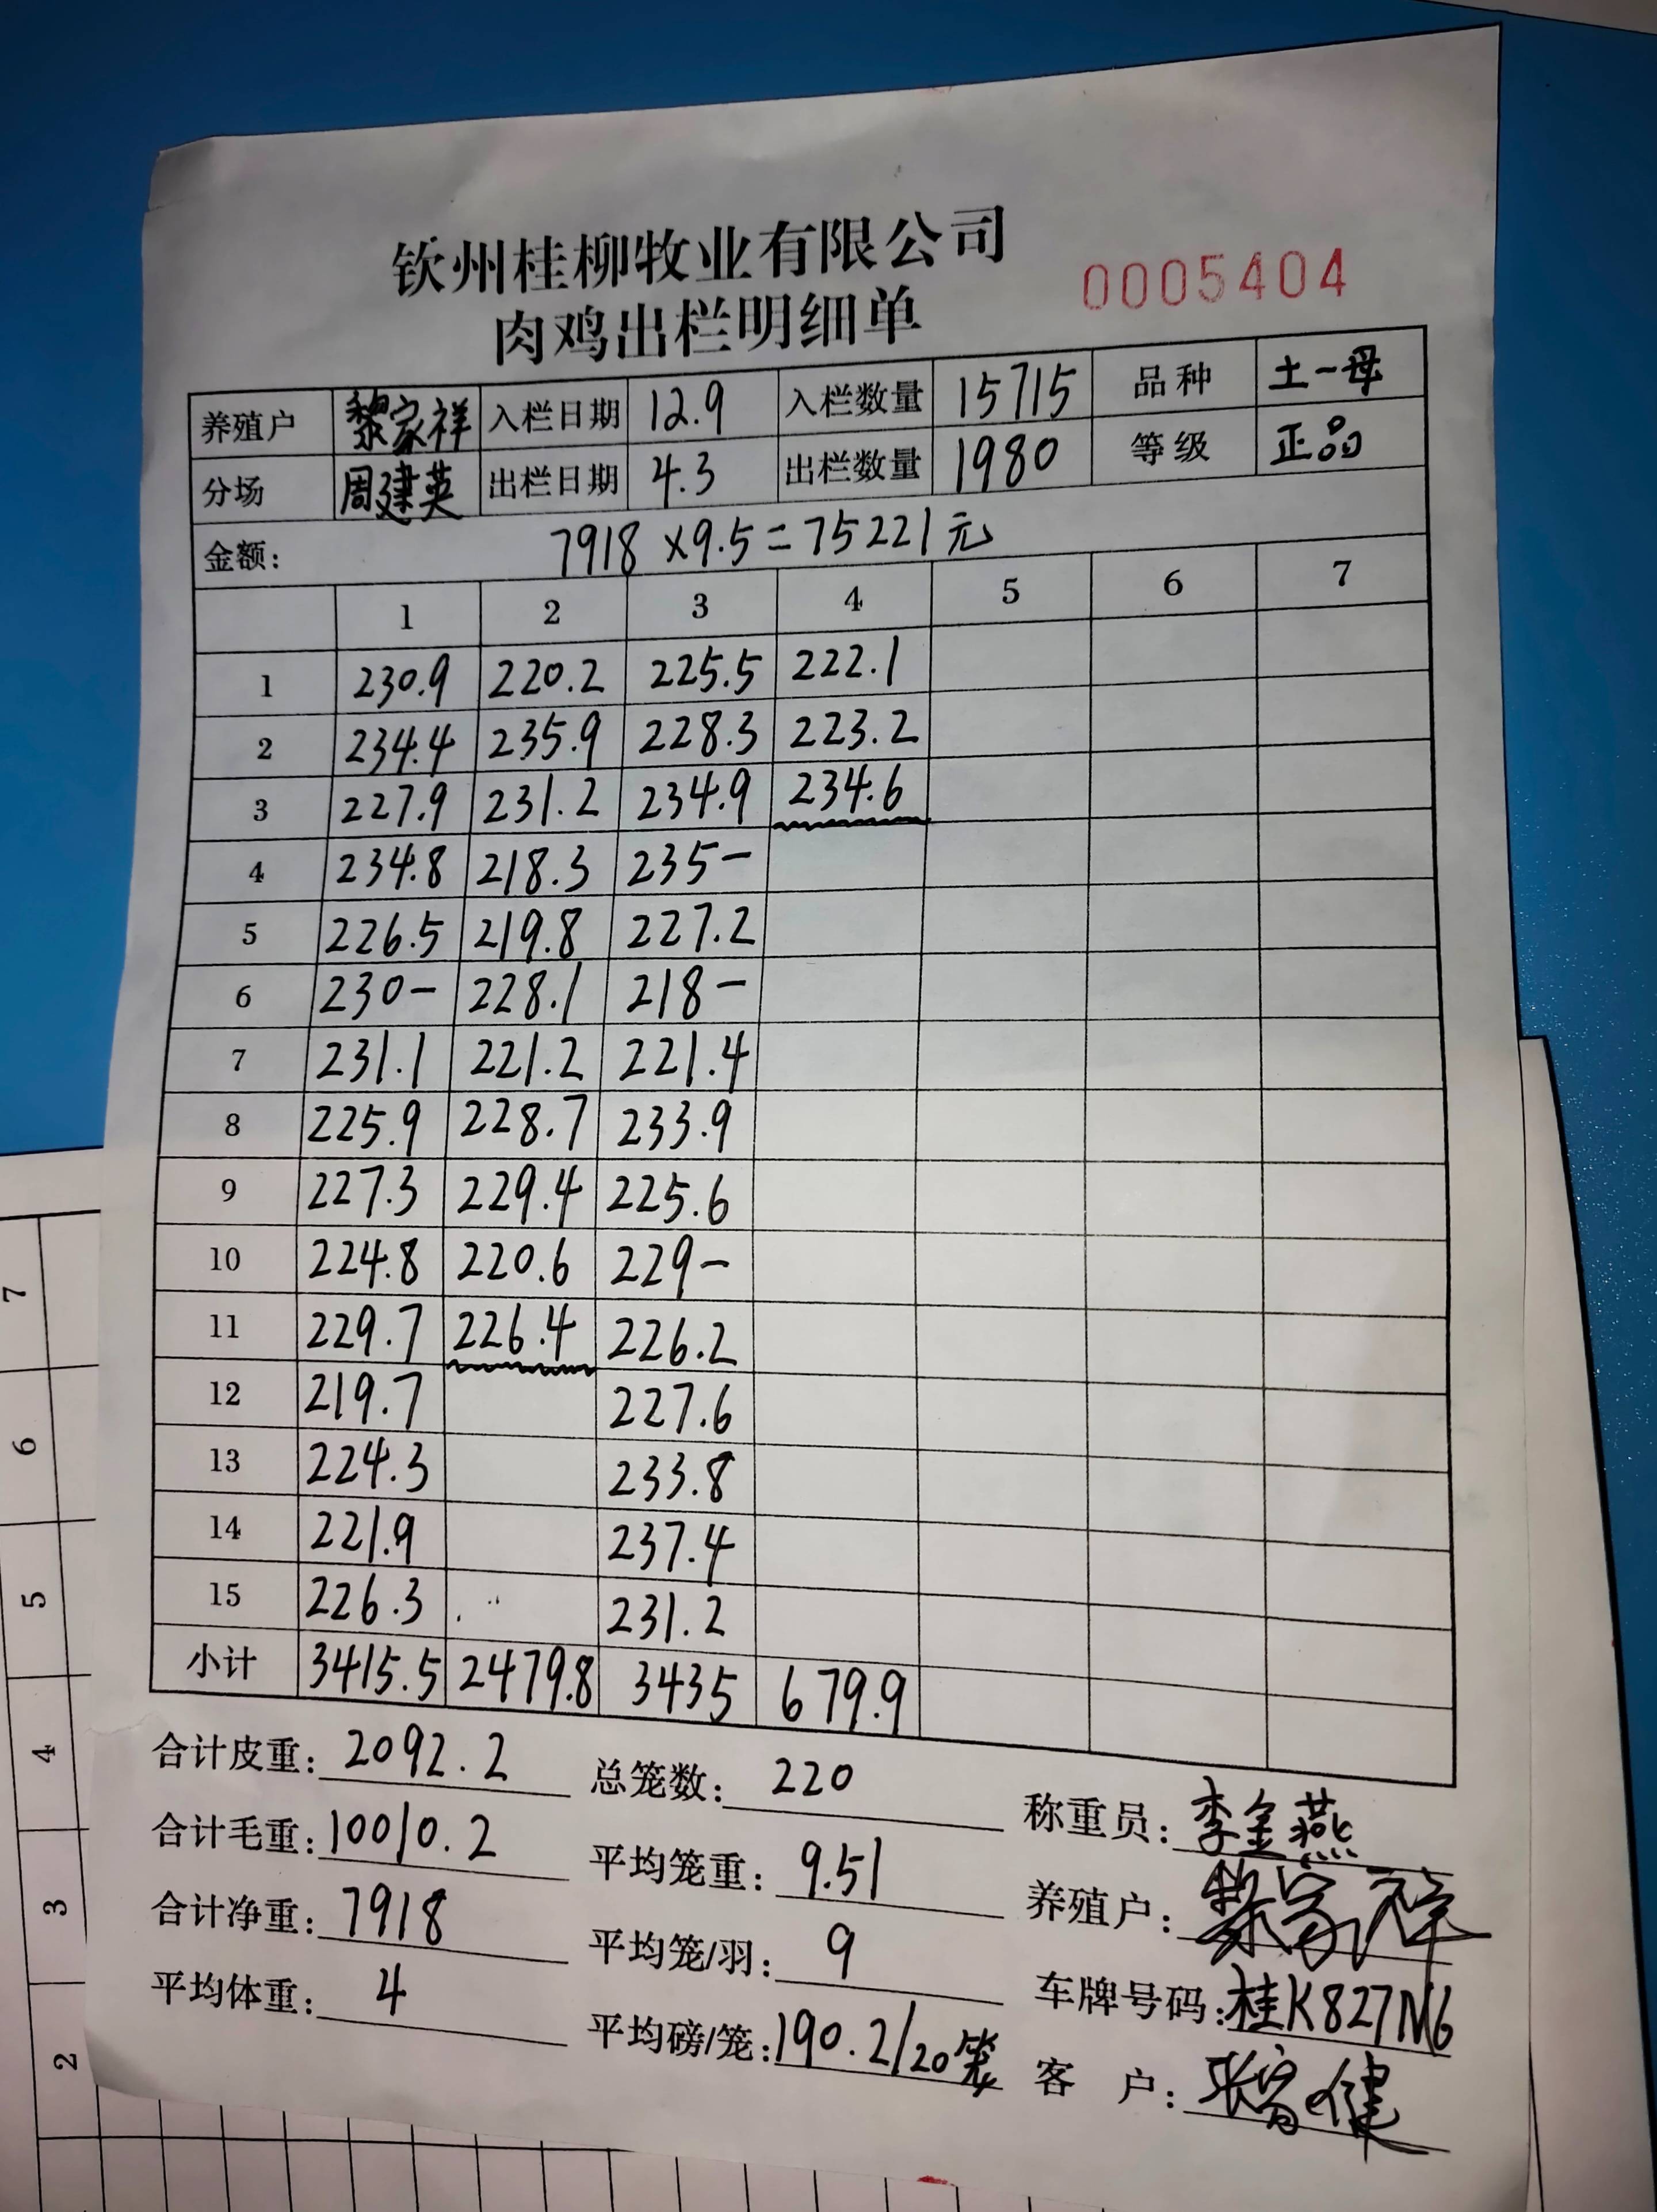 钦州桂柳牧业有限公司
肉鸡出栏明细单
0005404
养殖户 黎家祥 入栏日期 12.9 入栏数量 15715 品种 土一母
分场 周建英 出栏日期 4.3 出栏数量 1980 等级 正品
金额: 7918×9.5=75221元
1 2 3 4 5 6 7
1 230.9 220.2 225.5 222.1
2 234.4 235.9 228.3 223.2
3 227.9 231.2 234.9 234.6
4 234.8 218.3 235-
5 226.5 219.8 227.2
6 230- 228.1 218-
7 231.1 221.2 221.4
8 225.9 228.7 233.9
9 227.3 229.4 225.6
10 224.8 220.6 229-
11 229.7 226.4 226.2
12 219.7 227.6
13 224.3 233.8
14 221.9 237.4
15 226.3 231.2
小计 3415.5 2479.8 3435 679.9
合计皮重: 2092.2 总笼数: 220 称重员: 李金燕
合计毛重: 10010.2 平均笼重: 9.51 养殖户: 黎家祥
合计净重: 7918 平均笼/羽: 9 车牌号码: 桂K827N6
平均体重: 4 平均磅/笼: 190.2/20笼 客户:
7
6
5
4
3
2